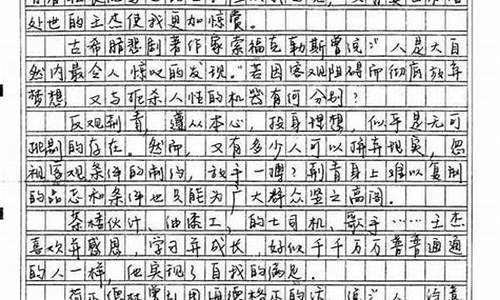 处世的王杰使我更加惊赏。
古希腊悲剧著作家索福克勒斯曾说:"人是大自
然内最令人惊叹的发现。"若因客观阻碍而彻底放弃
梦想,又与扼杀人性的机器有何分别?
反观荆青,遵从本心,投身理想,似乎是无可
挑剔的存在。然而,又有多少人可以降弃现实,忽
视客观条件的制约,放手一搏?荆青身上难以复制
的品志和条件也只能为广大群众竖立高阁。
茶楼伙计、油漆工、的士司机、歌手……王杰
喜欢并感恩,学习并成长,好似千千万万普普通通
的人一样,他实现了自我的满足。